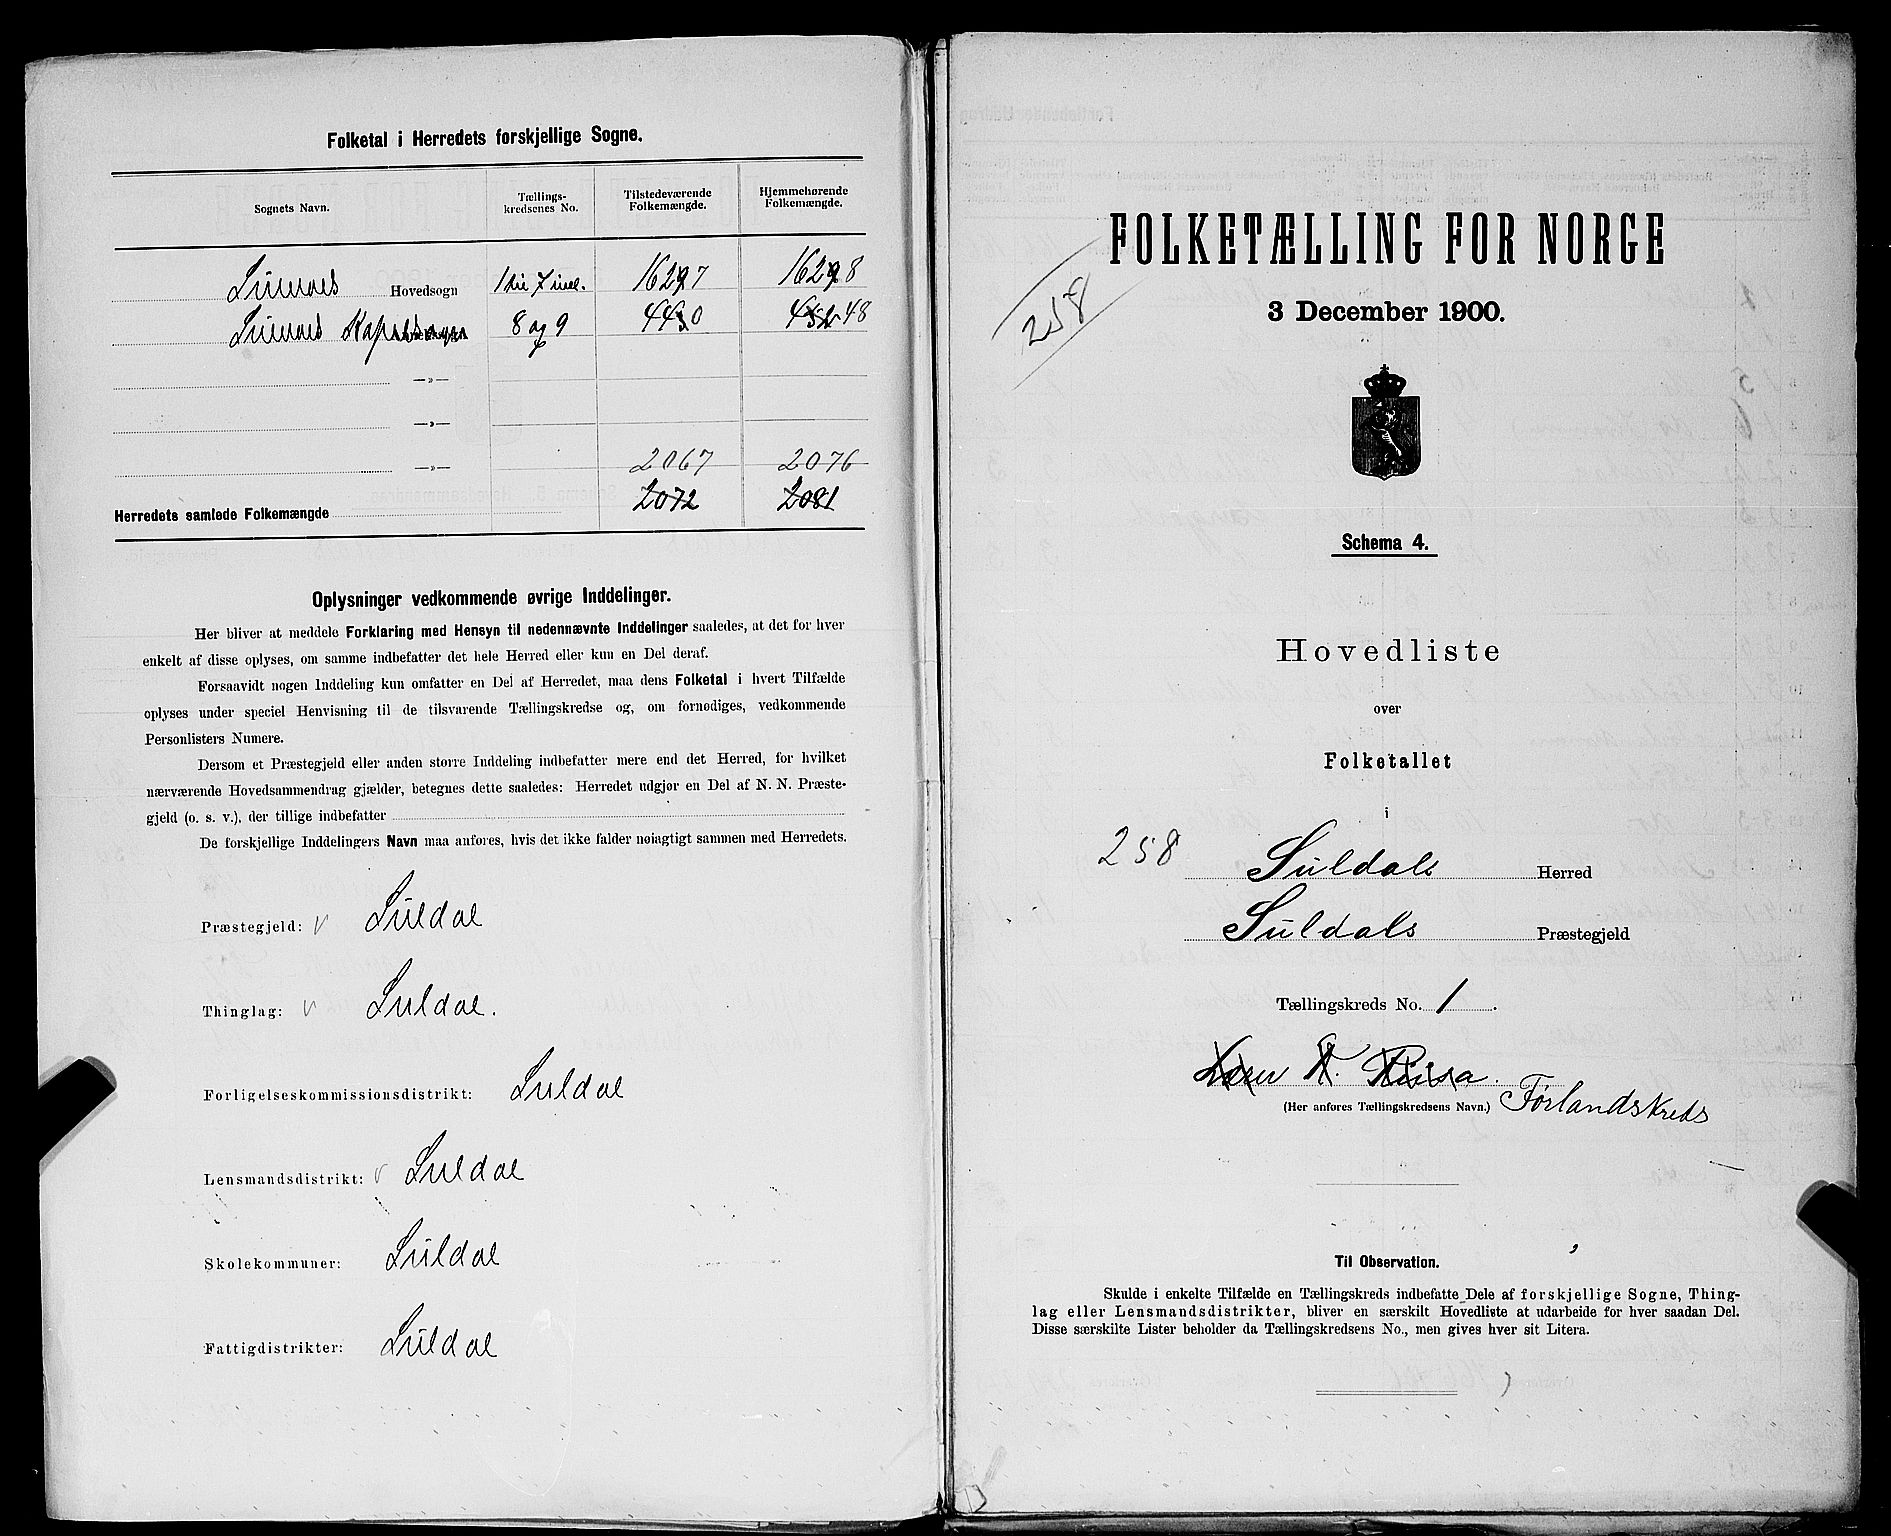 Folketal i Herredets forskjellige Sogne.
Sognets Navn. Tællings-kredsenes No. Tilstedeværende Folkemængde. Hjemmehørende Folkemængde.
Hovedsogn 1 til 7 incl. 1627 1628
8 og 9 440 448
—»—
—»—
—»— 2067 2076
Herredets samlede Folkemængde 2072 2081
Oplysninger vedkommende øvrige Inddelinger.
Her bliver at meddele Forklaring med Hensyn til nedennævnte Inddelinger saaledes, at det for hver
enkelt af disse oplyses, om samme indbefatter det hele Herred eller kun en Del deraf.
Forsaavidt nogen Inddeling kun omfatter en Del af Herredet, maa dens Folketal i hvert Tilfælde
oplyses under speciel Henvisning til de tilsvarende Tællingskredse og, om fornødiges, vedkommende
Personlisters Numere.
Dersom et Præstegjeld eller anden større Inddeling indbefatter mere end det Herred, for hvilket
nærværende Hovedsammendrag gjælder, betegnes dette saaledes: Herredet udgjør en Del af N. N. Præste-
gjeld (o. s. v.), der tillige indbefatter
De forskjellige Inddelingers Navn maa anføres, hvis det ikke falder nøiagtigt sammen med Herredets.
Præstegjeld: Suldal
Thinglag: Suldal.
Forligelseskommissionsdistrikt: Suldal
Lensmandsdistrikt: Suldal
Skolekommuner: Suldal
Fattigdistrikter: Suldal
FOLKETÆLLING FOR NORGE
258
3 December 1900.
Schema 4.
Hovedliste
over
Folketallet
i
258 Suldals Herred
Suldals Præstegjeld
Tællingskreds No. 1.
(Her anføres Tællingskredsens Navn.) Førlandskreds
Til Observation.
Skulde i enkelte Tilfælde en Tællingskreds indbefatte Dele af forskjellige Sogne, Thing-
lag eller Lensmandsdistrikter, bliver en særskilt Hovedliste at udarbeide for hver saadan Del.
Disse særskilte Lister beholder da Tællingskredsens No., men gives hver sit Litera.